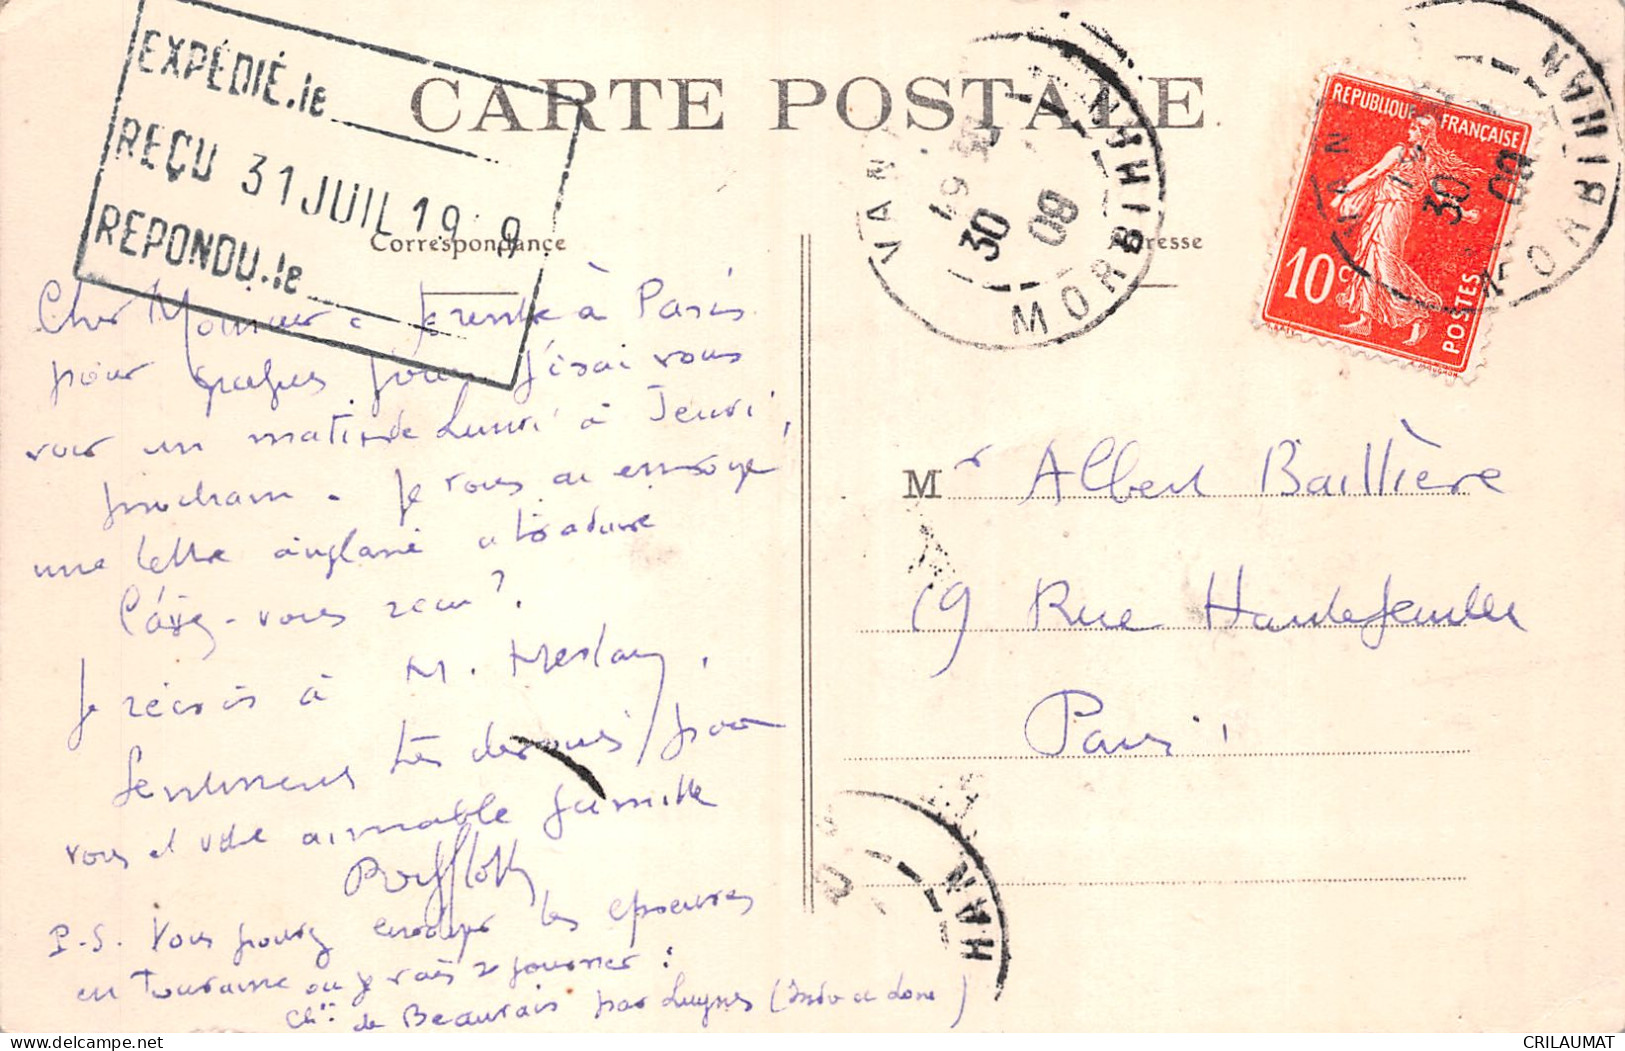 CARTE POSTALE
EXPÉDIÉ.le
REÇU 31 JUIL 19 9
REPONDU.le
Correspondance
Adresse
VANNES
30
09
MORBIHAN
REPUBLIQUE FRANÇAISE
10c
POSTES
Cher Monsieur : Je rentre à Paris
pour quelques jours. J'irai vous
voir un matin de Lundi à Jeudi,
prochain. Je vous ai envoyé
une lettre anglaise à traduire
l'avez-vous reçu?
Je récris à M. Meslay,
Sentiments très dévoués pour
vous et votre aimable famille
P.S. Vous pouvez envoyer les épreuves
en Touraine où je vais séjourner :
de Beauvais par Luynes (Indre et Loire)
Mr Albert Baillière
19 Rue Hautefeuille
Paris.
HAN
CRILAUMAT